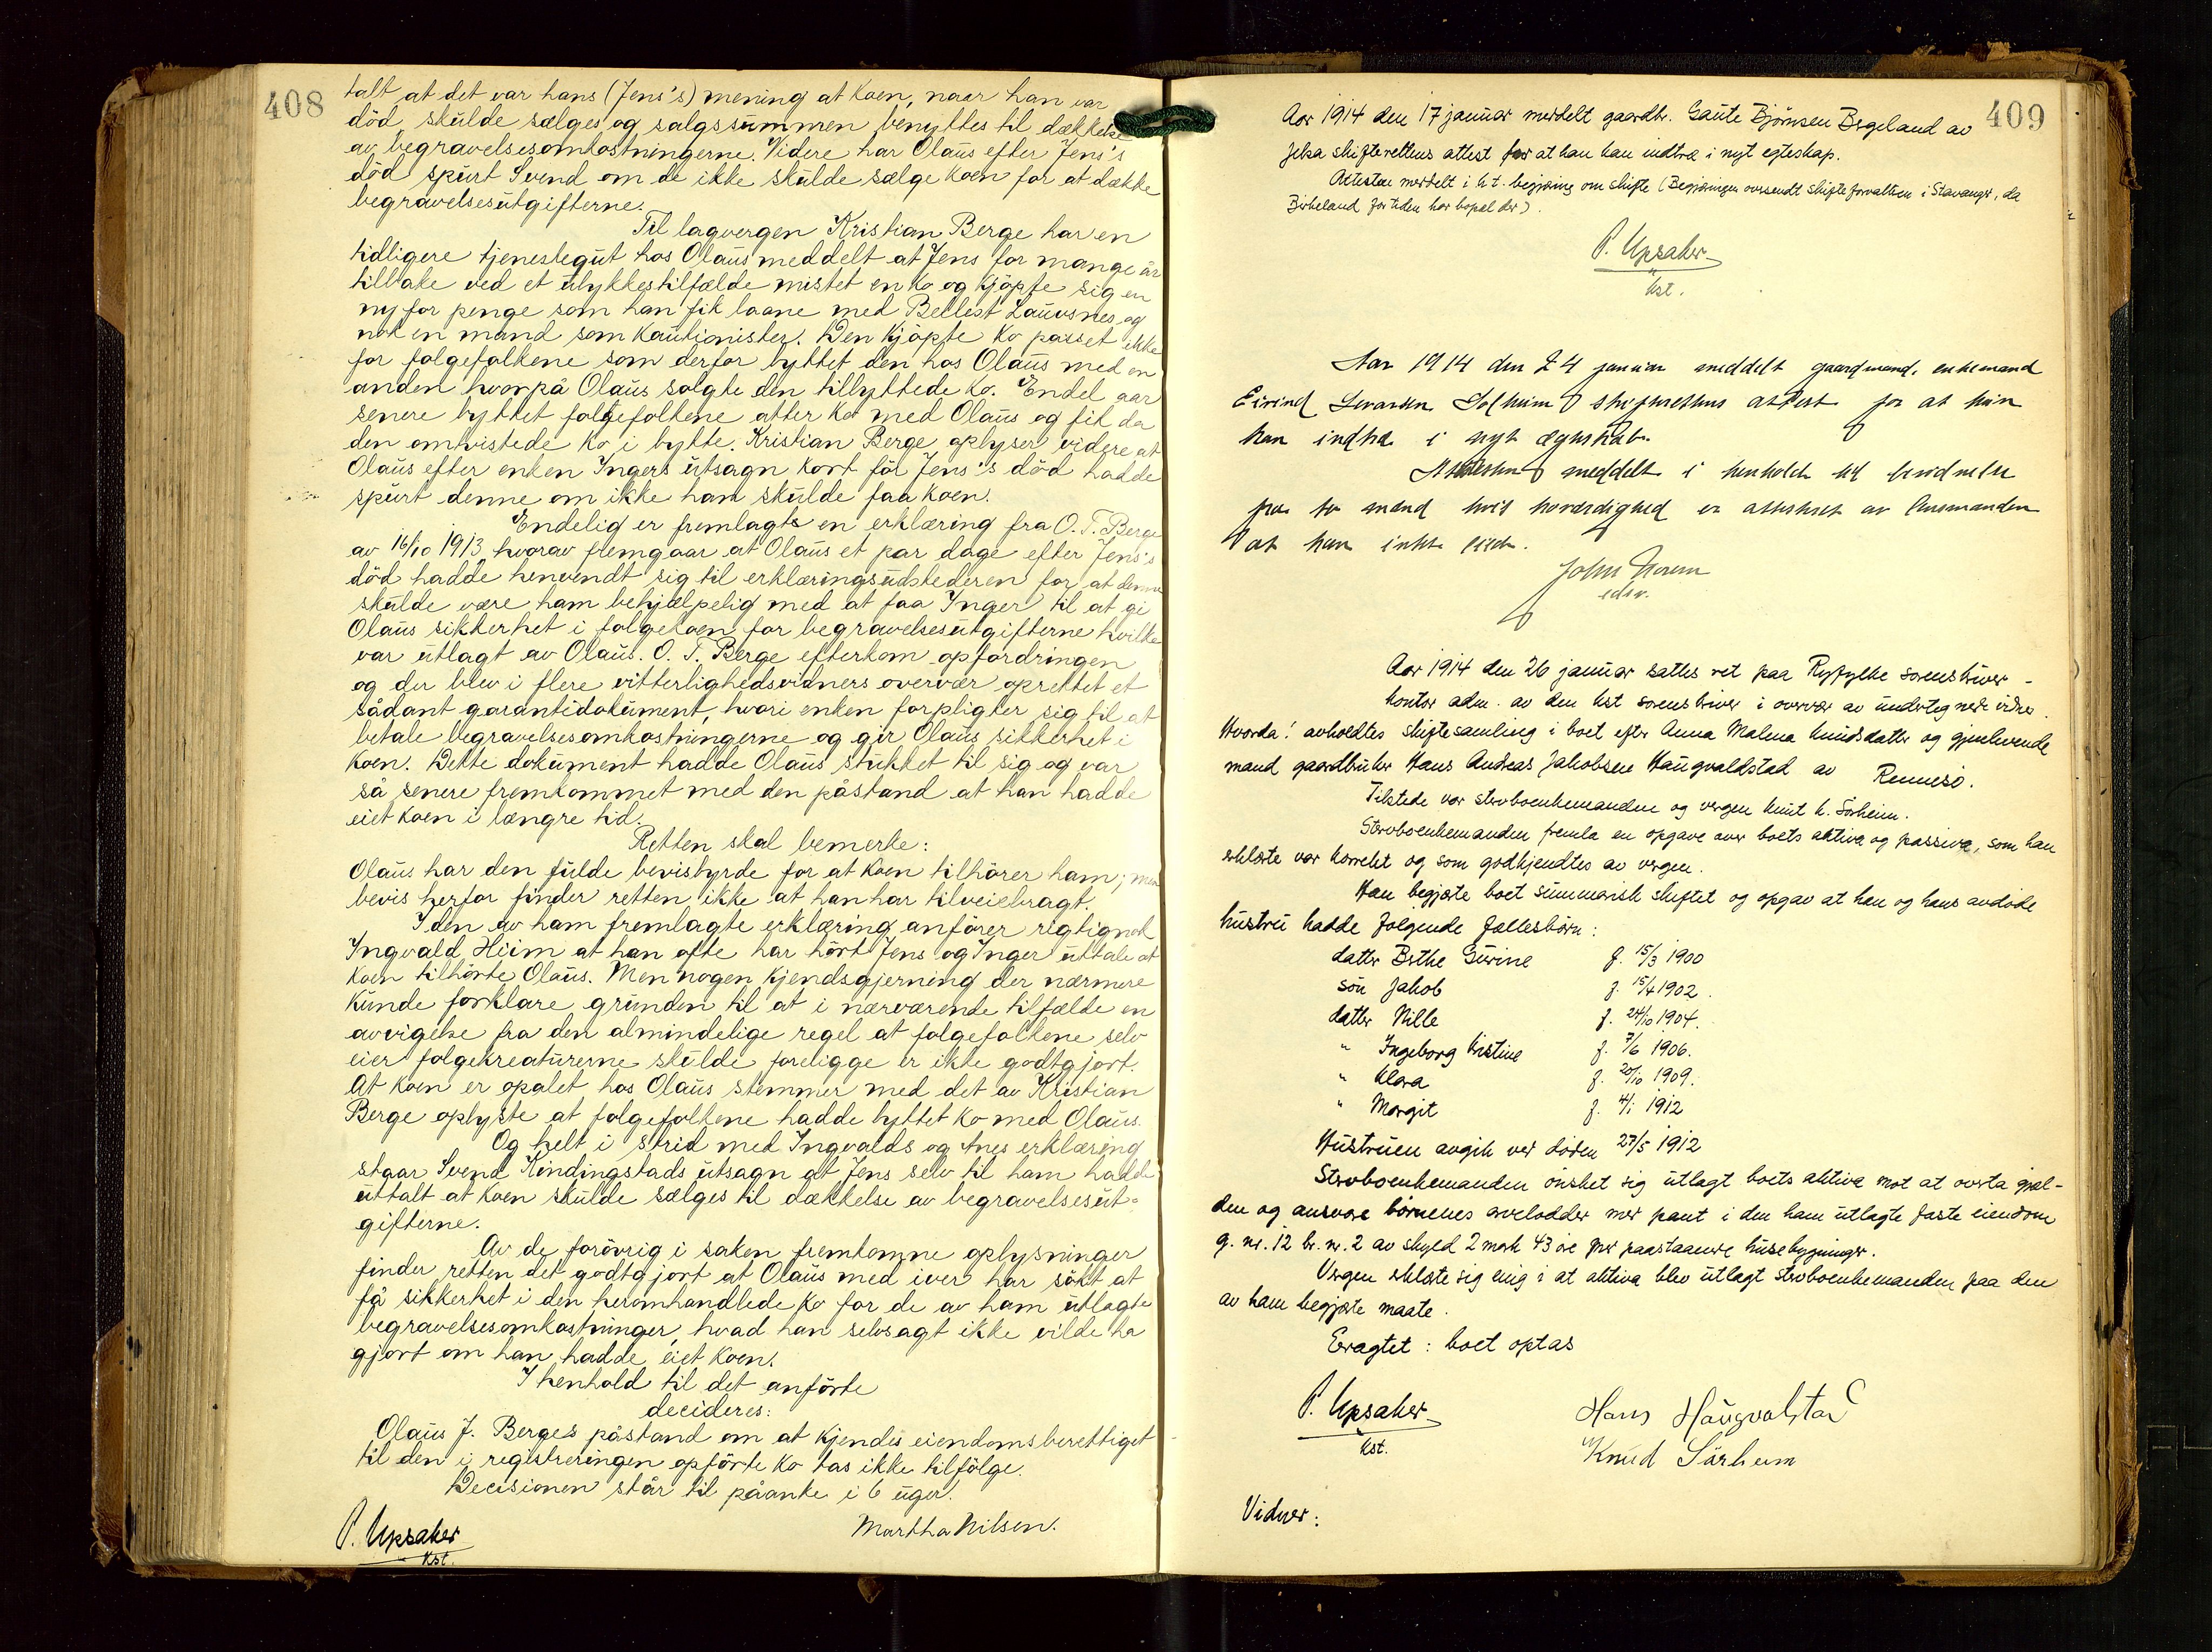 408
talt at det var hans (Jens's) mening at koen, naar han var
död, skulde sælges og salgssummen benyttes til dækkelse
av begravelsesomkostningerne. Videre har Olaus efter Jens's
död spurt Svend om de ikke skulde sælge koen for at dække
begravelsesutgifterne.
Til lagvergen Kristian Berge har en
tidligere tjenestegut hos Olaus meddelt at Jens for mange år
tilbake ved et ulykkestilfælde mistet en ko og kjöpte sig en
ny for penge som han fik laane med Bellest Lauvsnes og
nok en mand som kautionister. Den kjöpte ko passet ikke
for folgefolkene som derfor byttet den hos Olaus med en
anden hvorpå Olaus solgte den tilbyttede ko. Endel aar
senere byttet folgefolkene atter ko med Olaus og fik da
den omtvistede ko i bytte. Kristian Berge oplyser videre at
Olaus efter enken Ingers utsagn kort för Jens's död hadde
spurt denne om ikke han skulde faa koen.
Endelig er fremlagts en erklæring fra O. T. Berge
av 16/10 1913, hvorav fremgaar at Olaus et par dage efter Jens's
död hadde henvendt sig til erklæringsudstederen for at denne
skulde være ham behjælpelig med at faa Inger til at gi
Olaus sikkerhet i folgekoen for begravelsesutgifterne hvilke
var utlagt av Olaus. O. T. Berge efterkom opfordringen
og der blev i flere vitterlighedsvidners overvær oprettet et
sådant garantidokument, hvori enken forpligter sig til at
betale begravelsesomkostningerne og gir Olaus sikkerhet i
koen. Dette dokument hadde Olaus stukket til sig og var
så senere fremkommet med den påstand at han hadde
eiet koen i længre tid.
Retten skal bemerke:
Olaus har den fulde bevisbyrde for at koen tilhörer ham; men
bevis herfor finder retten ikke at han har tilveiebragt.
I den av ham fremlagte erklæring anförer rigtignok
Ingvald Heim at han ofte har hört Jens og Inger uttale at
koen tilhörte Olaus. Men nogen kjendsgjerning der nærmere
kunde forklare grunden til at i nærværende tilfælde en
avvigelse fra den almindelige regel at folgefolkene selv
eier folgekreaturerne skulde foreligge er ikke godtgjort.
At koen er opalet hos Olaus stemmer med det av Kristian
Berge oplyste at folgefolkene hadde byttet ko med Olaus.
Og helt i strid med Ingvalds og Anes erklæring
staar Svend Kindingstads utsagn at Jens selv til ham hadde
uttalt at koen skulde sælges til dækkelse av begravelsesut=
gifterne.
Av de forövrig i saken fremkomne oplysninger
finder retten det godtgjort at Olaus med iver har sökt at
få sikkerhet i den heromhandlede ko for de av ham utlagte
begravelsesomkostninger, hvad han selvsagt ikke vilde ha
gjort om han hadde eiet koen.
I henhold til det anförte
decideres:
Olaus J. Berges påstand om at kjendes eiendomsberettiget
til den i registreringen opförte ko tas ikke tilfölge.
Decisionen står til påanke i 6 uger.
P. Upsaker
kst.
Martha Nilsen.
409
Aar 1914 den 17 januar meddelt gaardbr. Gaute Björnsen Bergeland av
Jelsa skifterettens attest for at han kan indtræ i nyt egteskap.
Attesten meddelt i h. t. begjæring om skifte (Begjæringen oversendt skifteforvalteren i Stavanger, da
Birkeland for tiden har bopæl der).
P. Upsaker
kst.
Aar 1914 den 24 januar meddelt gaardmand, enkemand
Eivind Sevaldsen Solheim skifterettens attest for at han
kan indtræ i nyt ægteskab.
Attesten meddelt i henhold til bevidnelse
fra to mænd hvis troværdighed er attesteret av lensmanden
at han intet eier.
John Norem
edsv.
Aar 1914 den 26 januar sattes ret paa Ryfylke sorenskriver-
kontor adm. av den kst sorenskriver i overvær av undertegnede vidner.
Hvorda! avholdtes skiftesamling i boet efter Anna Malena Knudsdatter og gjenlevende
mand gaardbruker Hans Andreas Jakobsen Haugvaldstad av Rennesö.
Tilstede var stervboenkemanden og vergen Knut K. Sörheim.
Stervboenkemanden fremla en opgave over boets aktiva og passiva, som han
erklærte var korrekt og som godkjendtes av vergen.
Han begjærte boet summarisk skiftet og opgav at han og hans avdöde
hustru hadde folgende fællesbörn:
datter Berthe Gurine f. 15/3 1900
sön Jakob f. 15/4 1902.
datter Nille f. 24/10 1904.
" Ingeborg Kristine f. 7/6 1906.
" Klara f. 20/10 1909.
" Margit f. 4/1 1912
Hustruen avgik ved döden 27/5 1912
Stervboenkemanden önsket sig utlagt boets aktiva mot at overta gjæl-
den og ansvare börnenes arvelodder mot pant i den ham utlagte faste eiendom
g. nr. 12 br. nr. 2 av skyld 2 mark 43 öre med paastaaende husebygninger.
Vergen erklærte sig enig i at aktiva blev utlagt stervboenkemanden paa den
av ham begjærte maate.
Eragtet: boet optas
P. Upsaker
kst.
Hans Haugvalstad
Knud Sörheim
Vidner: